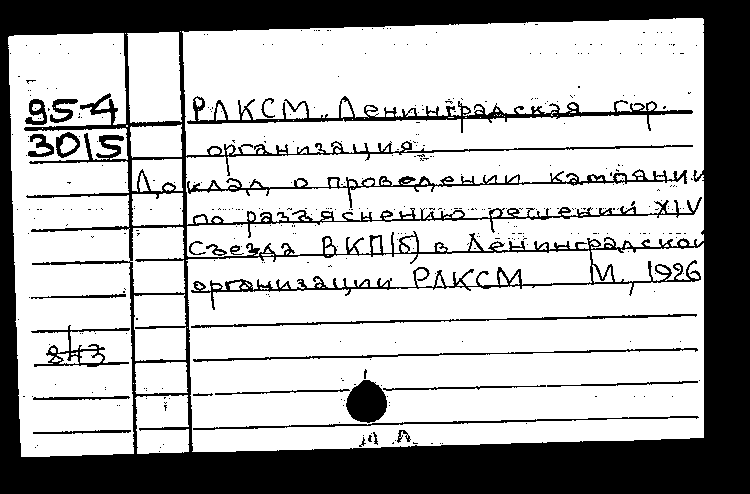 95-4
3015
РЛКСМ. Ленинградская гор.
организация.
Доклад о проведении кампании
по разъяснению решений XIV
съезда ВКП(б) в Ленинградской
организации РЛКСМ. М., 1926